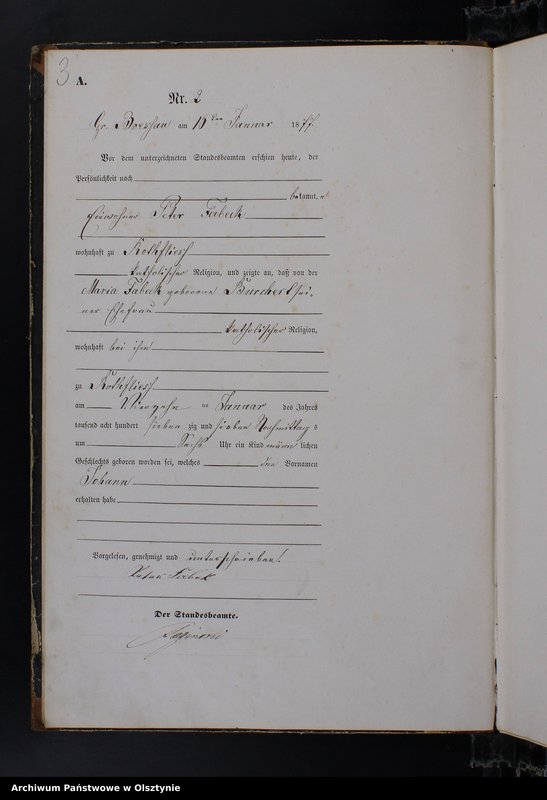 3
A.
Nr. 2
Gr. Boessau am ten Januar 1877
Vor dem unterzeichneten Standesbeamten erschien heute, der
Persönlichkeit nach
bekannt,
Einwohner Peter Fabeck
wohnhaft zu Rothfliess
katholischer Religion, und zeigte an, daß von der
Maria Fabeck geborene Burchert sei-
ner Ehefrau
katholischer Religion,
wohnhaft bei ihm
zu Rothfliess
am Vierzehn ten Januar des Jahres
tausend acht hundert sieben zig und sieben Nachmittags
um Sechs Uhr ein Kind männ lichen
Geschlechts geboren worden sei, welches den Vornamen
Johann
erhalten habe
Vorgelesen, genehmigt und unterschrieben!
Peter Fabek
Der Standesbeamte.
Archiwum Państwowe w Olsztynie